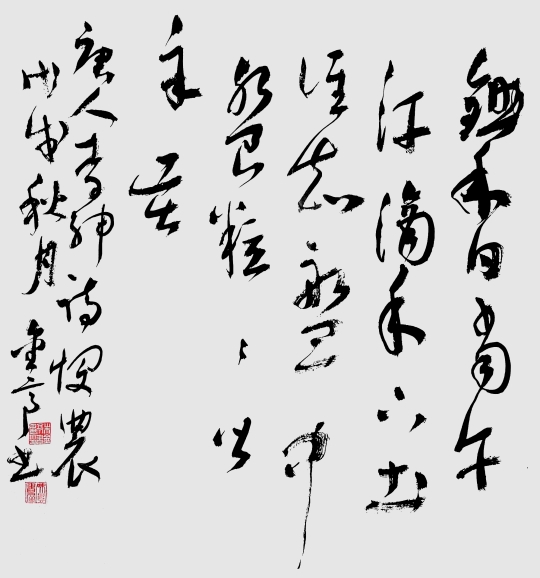 鋤禾日當午
汗滴禾下土
誰知盤中
飧粒々皆
辛苦
唐人李紳詩憫農
戊戌秋月書